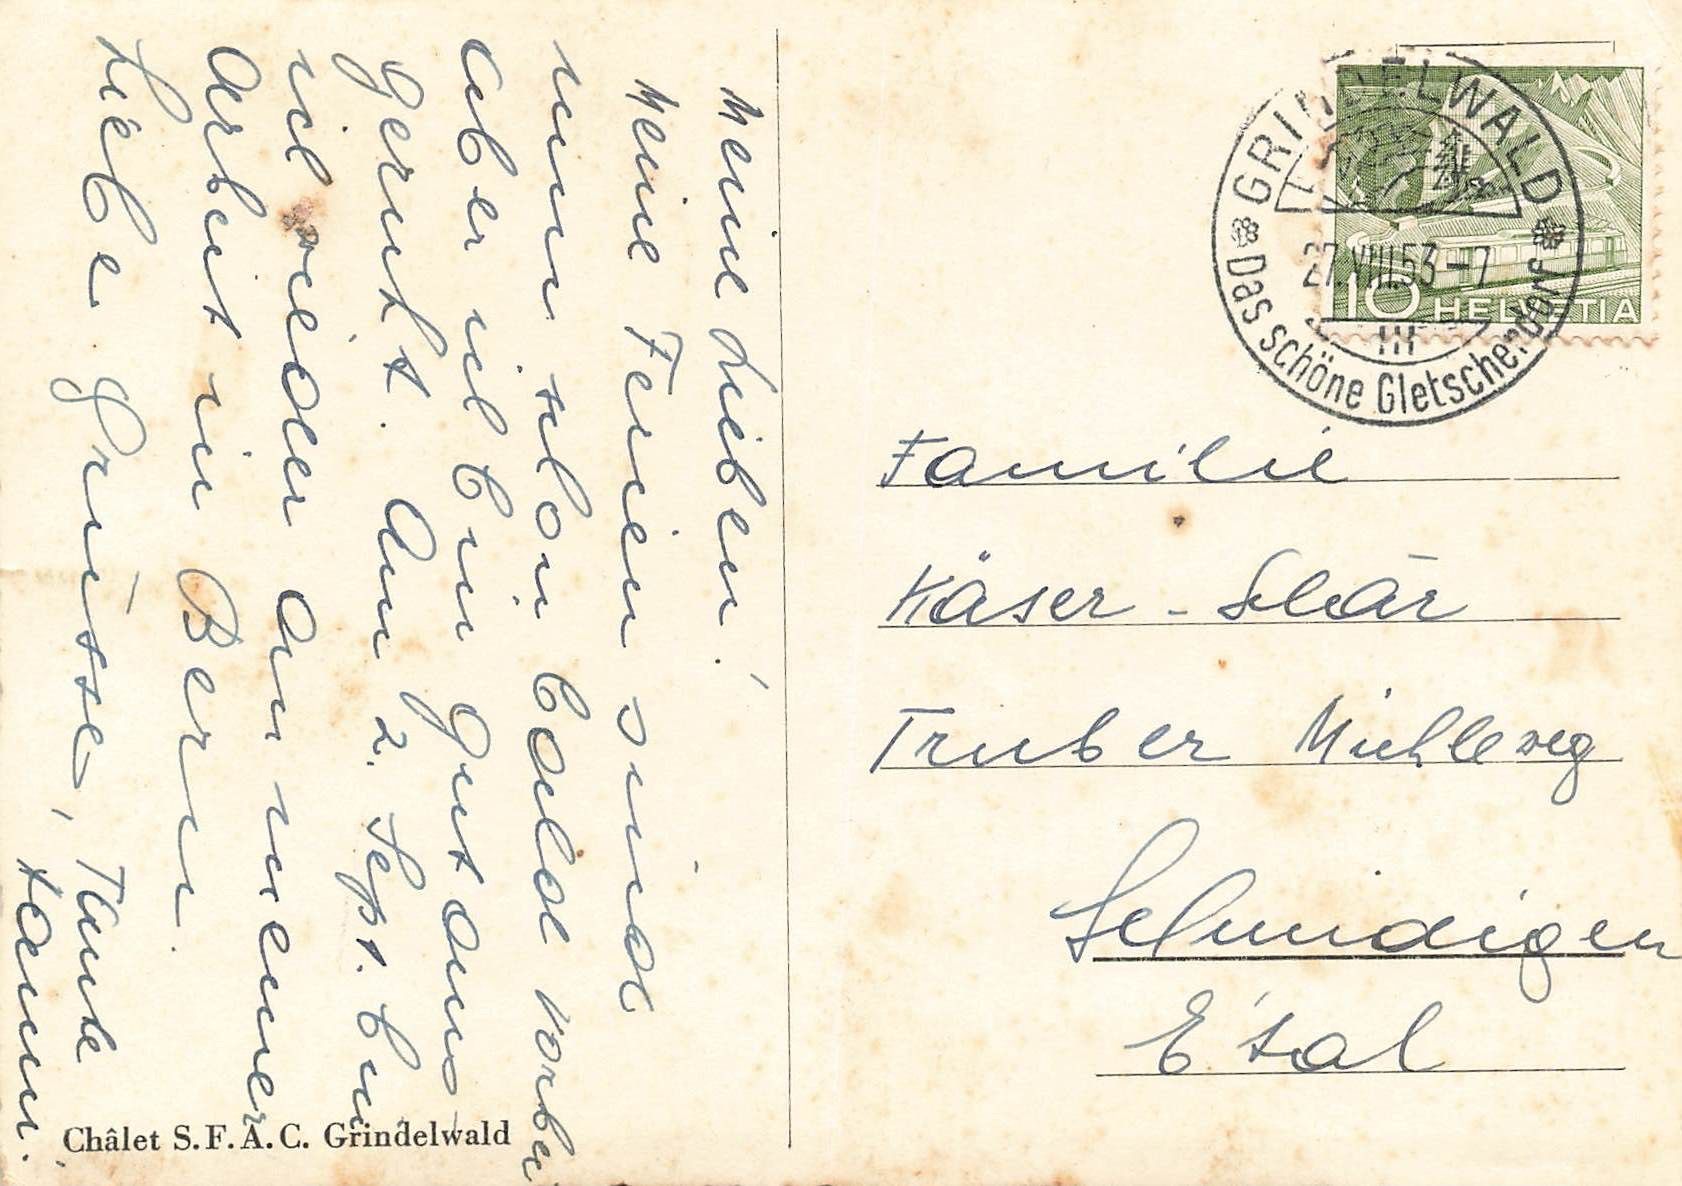 Meine Lieben!
Meine Ferien sind
nun schon bald vorbei
aber ich bin gut aus-
geruht. Am 2. Sept. bin
ich wieder an meiner
Arbeit in Bern.
Liebe Grüsse, Tante
Hanni.
Châlet S.F.A.C. Grindelwald
GRINDELWALD
27.VIII.53-7
Das schöne Gletscherdorf
10 HELVETIA
Familie
Käser - Schär
Truber Mühleweg
Schmidigen
E'tal